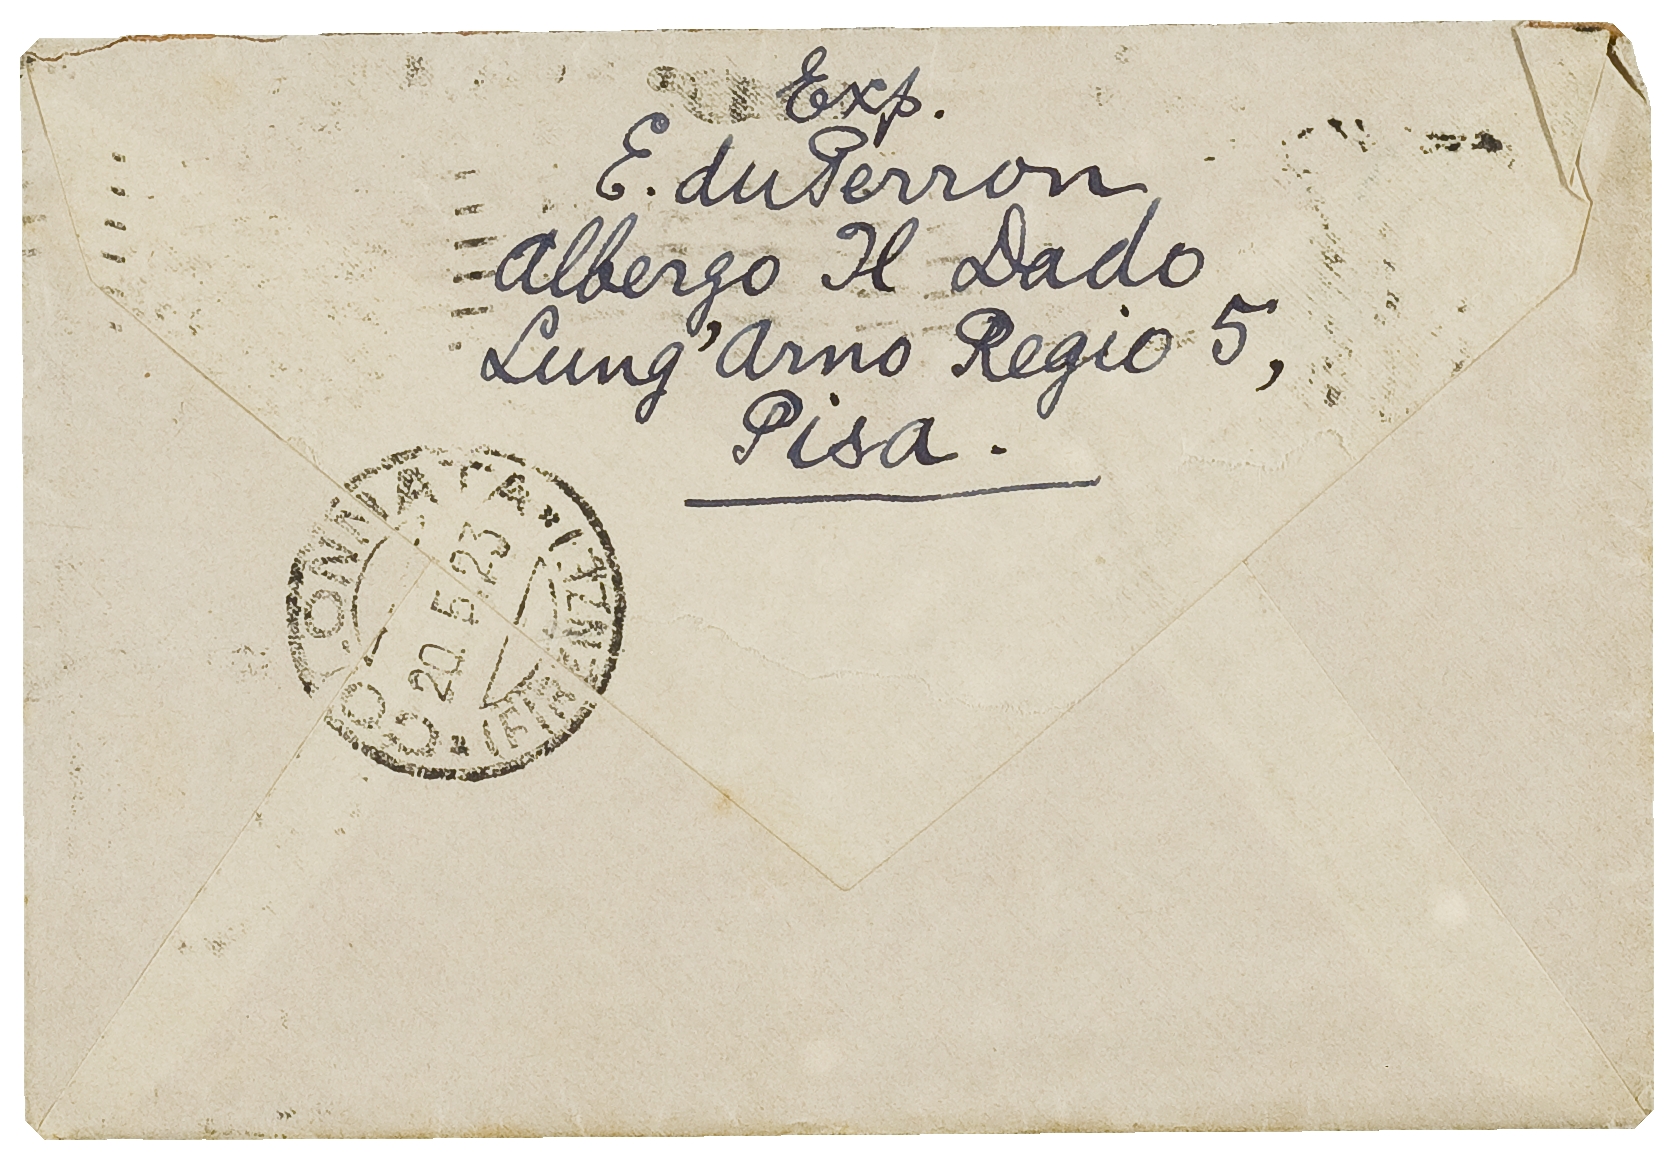 Exp.
E. du Perron
Albergo Il Dado
Lung'Arno Regio 5,
Pisa.
20.5.23
(FIRENZE)